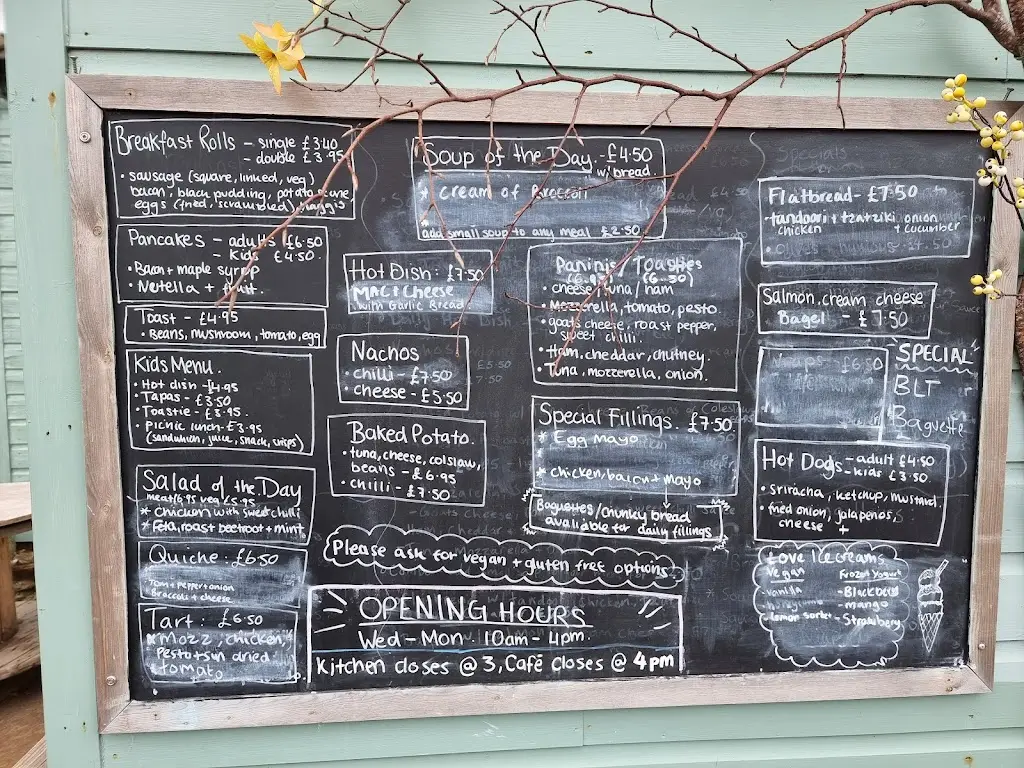 Breakfast Rolls - single £3.40
- double £3.95
• sausage (square, linked, veg)
bacon, black pudding, potato scone
eggs (fried, scrambled), haggis
Pancakes - adults £6.50
- kids £4.50
• Bacon + maple syrup
• Nutella + fruit.
Toast - £4.95
• Beans, mushroom, tomato, egg
Kids Menu.
• Hot dish - £4.95
• Tapas - £3.50
• Toastie - £3.95.
• Picnic lunch - £3.95
(sandwich, juice, snack, crisps)
Salad of the Day
meat £6.95 veg £5.95
* Chicken with sweet chilli
* Feta, roast beetroot + mint
Quiche: £6.50
Tom + pepper + onion
Broccoli + cheese
Tart: £6.50
* Mozz, chicken,
Pesto + sun dried
tomato
Soup of the Day - £4.50
w/ bread.
* cream of Broccoli
add small soup to any meal £2.50
Hot Dish: £7.50
Mac + Cheese
with Garlic Bread
Nachos
• chilli - £7.50
• cheese - £5.50
Baked Potato.
• tuna, cheese, colslaw,
beans - £6.95
• chilli - £7.50
Paninis / Toasties
• cheese, tuna / ham
• Mozzerella, tomato, pesto
• goats cheese, roast pepper,
sweet chilli.
• Ham, cheddar, chutney.
• Tuna, mozzerella, onion.
Special Fillings. £7.50
* Egg mayo
*
* chicken/bacon + mayo
Baguettes/chunky bread
available for daily fillings
Please ask for vegan + gluten free options
OPENING HOURS
Wed - Mon 10am - 4pm.
Kitchen closes @ 3, Café closes @ 4pm
Specials
Flatbread - £7.50
• tandoori + tzatziki onion
chicken + cucumber
Salmon, cream cheese
Bagel - £7.50
SPECIAL
BLT
Baguette
Hot Dogs - adult £4.50
- kids £3.50
• sriracha, ketchup, mustard.
• fried onion, jalapenos,
cheese +
Love Icecreams
Vegan Frozen Yogurt
vanilla - Blackcurrant
- mango
• lemon sorbet - Strawberry